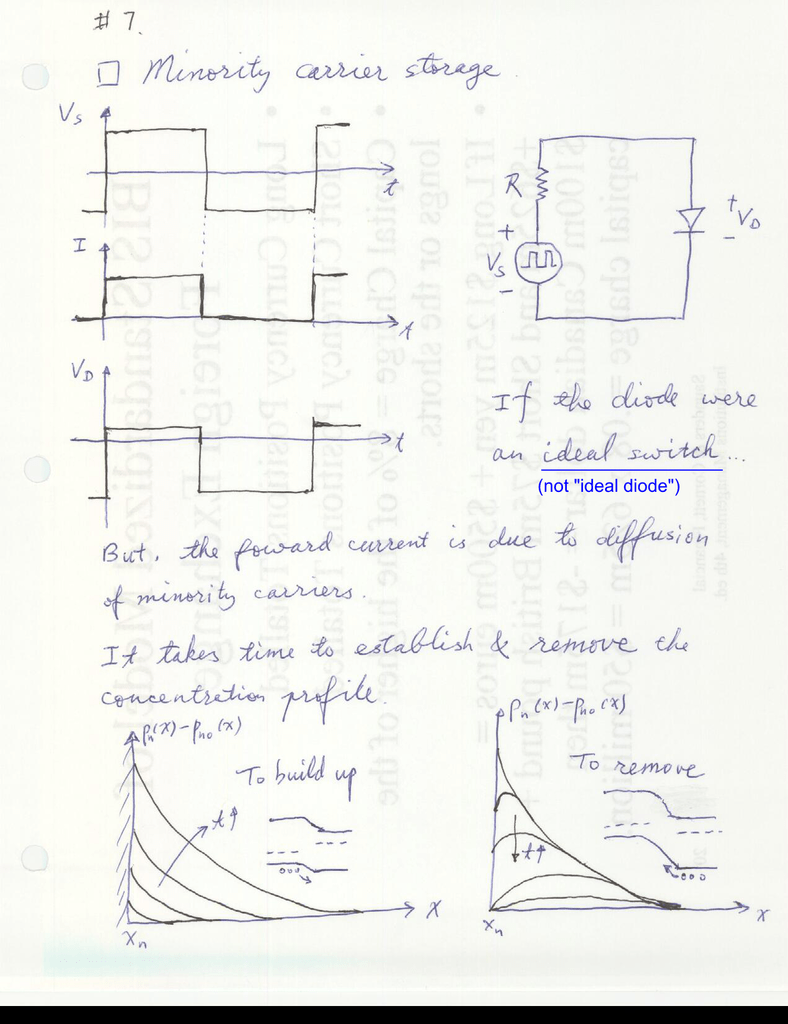 # 7.
□ Minority carrier storage.
Vs
t
I
t
VD
t
R
+
Vs
-
+
VD
-
If the diode were
an ideal switch...
(not "ideal diode")
But, the foward current is due to diffusion
of minority carriers.
It takes time to establish & remove the
concentration profile.
Pn(x)-Pno(x)
To build up
t↑
x
xn
Pn(x)-Pno(x)
To remove
t↑
x
xn